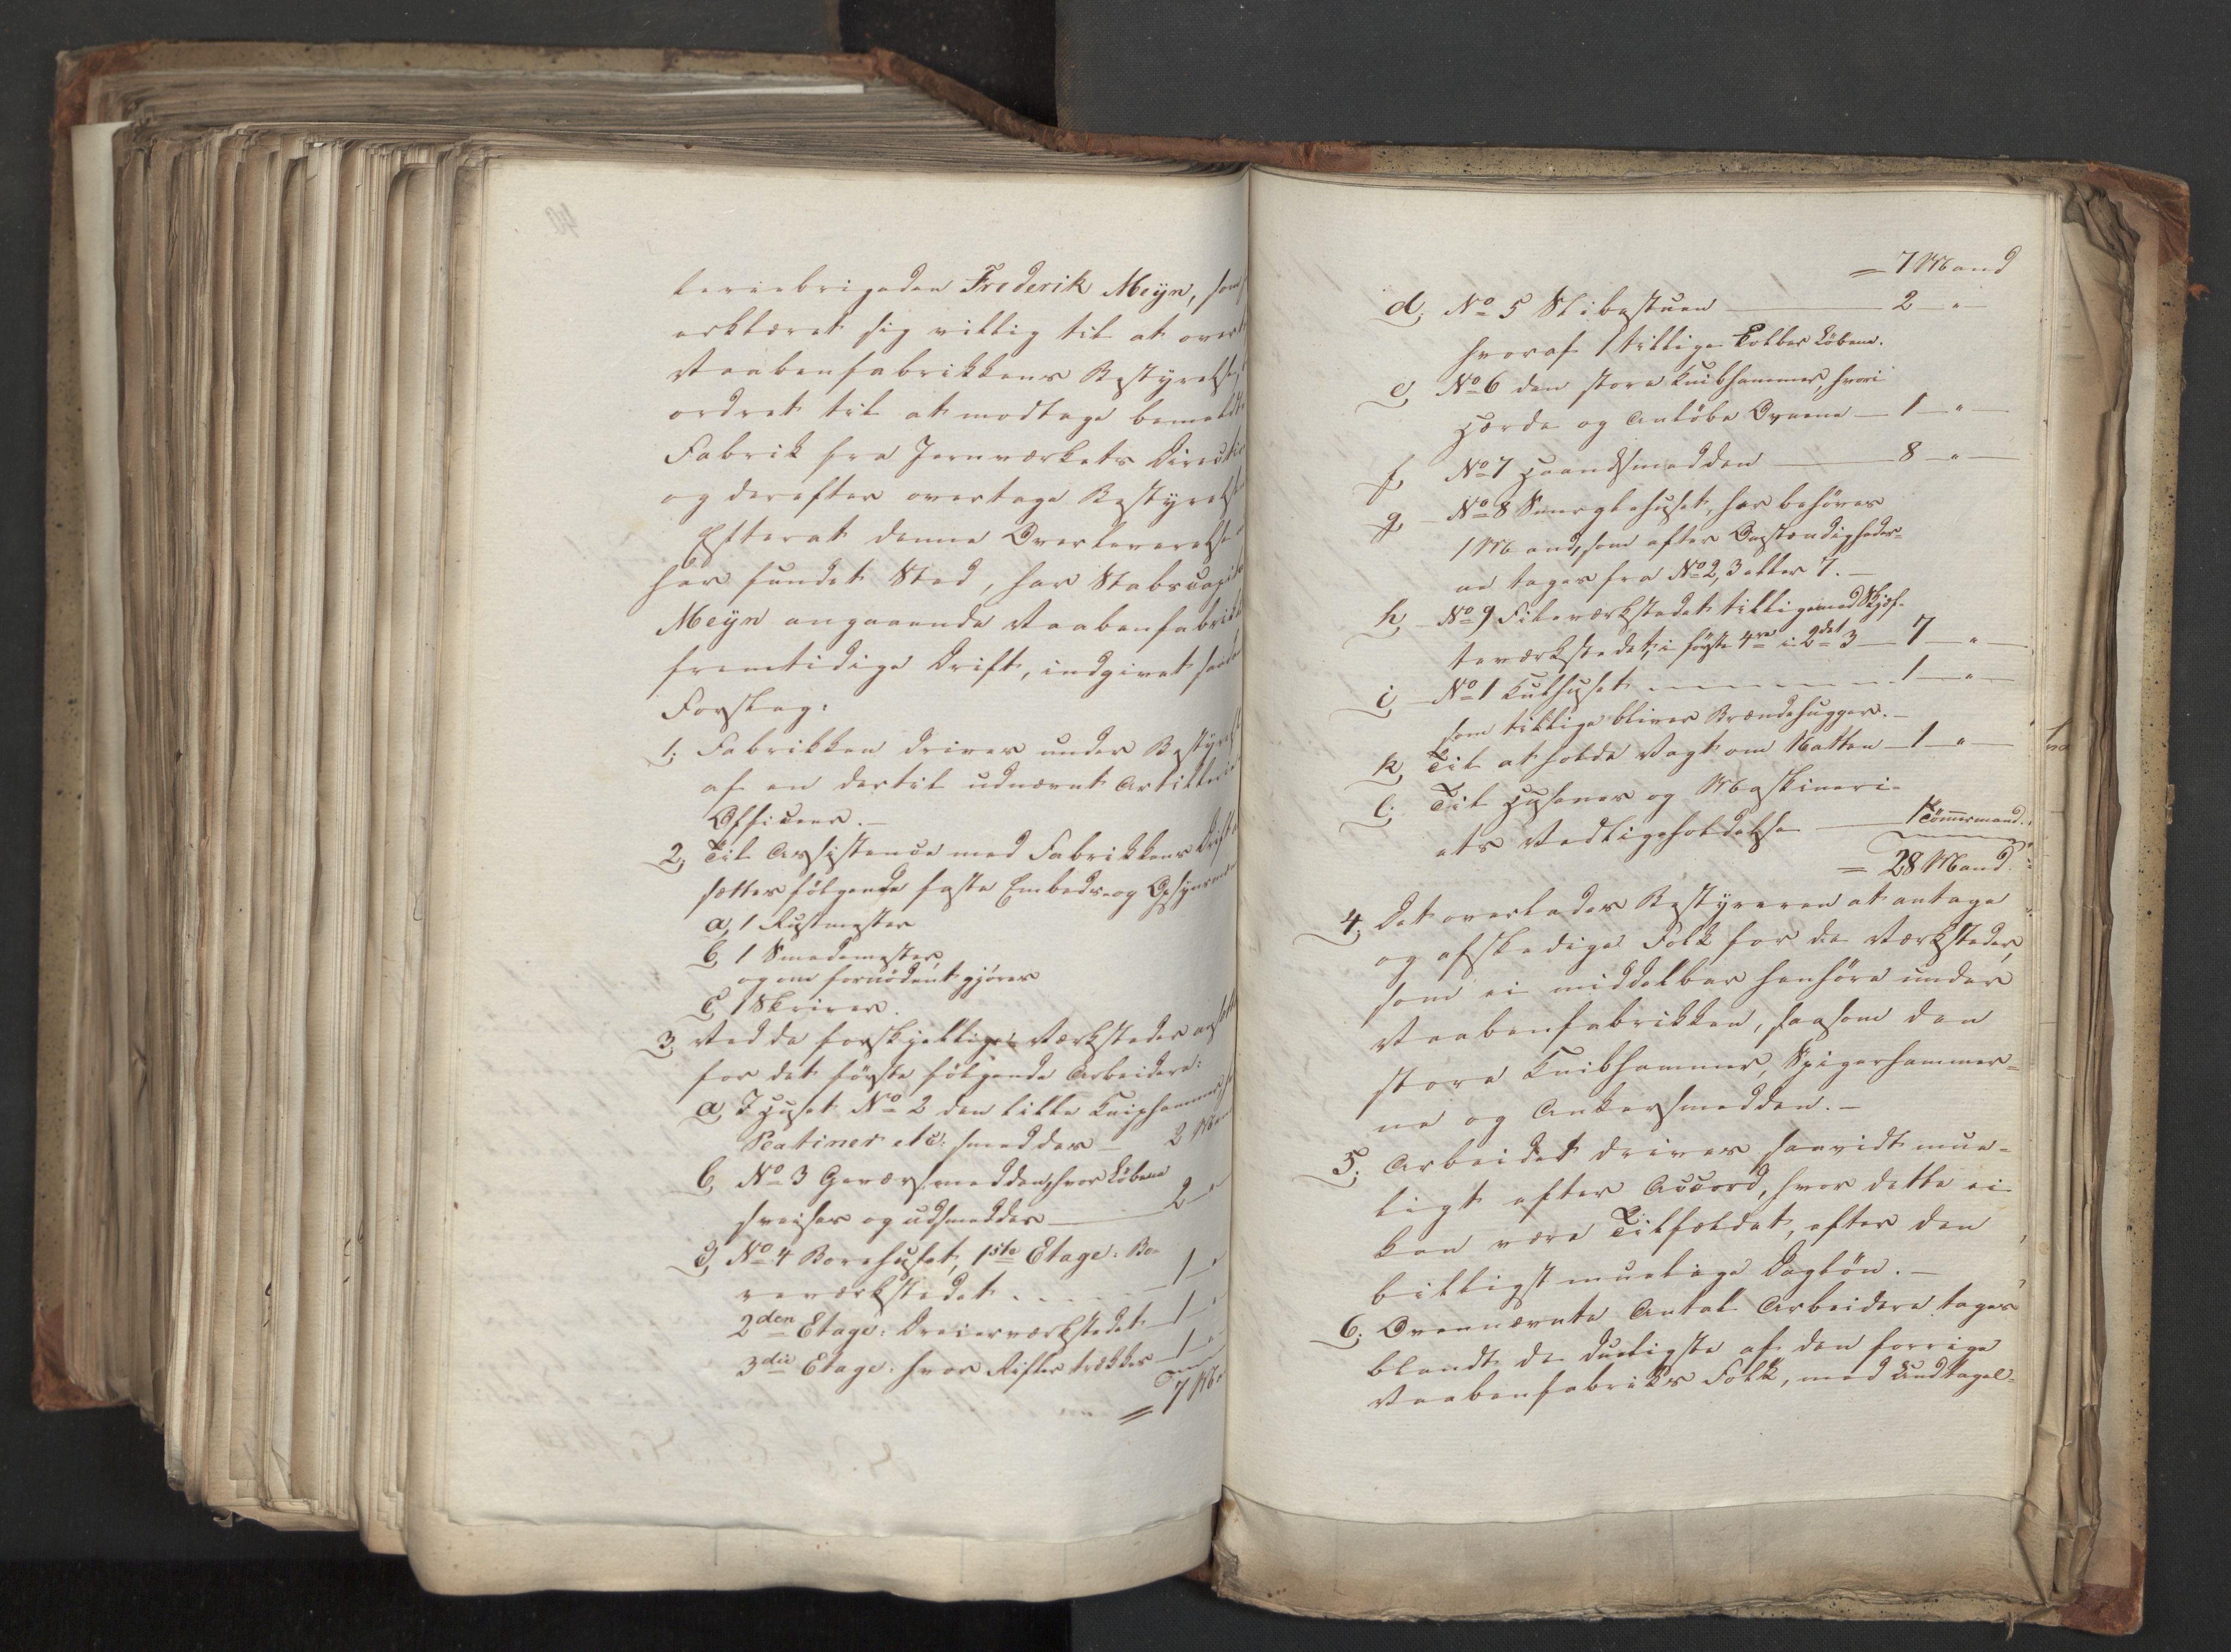 leriebrigaden Frederik Meyn, som
erklæret sig villig til at over
Vaabenfabrikkens Bestyrelse,
ordret til at modtage bemeldte
Fabrik fra Jernværkets Direction
og derefter overtage Bestyrelsen
Efterat denne Overleverelse
har fundet Sted, har Stabscapit
Meyn angaaende Vaabenfabrikk
fremtidige Drift, indgivet saadan
Forslag:
1, Fabrikken drives under Bestyrelse
af en dertil udnævnt Artillerie
Officeer.-
2, Til Assistence med Fabrikkens Drift
sættes følgende faste Embeds- og Opsynsmæn
a, 1 Rustmester
b, 1 Smedemester,
og om fornødent gjøres
c, 1 Skriver.
3, Ved de forskjellige Værksteder ansættes
for det første følgende Arbeidere:
a, I Huset No 2 den lille Kniphammer,
Platiner etc: smeddes - 2 Man
b, No 3 Geværsmedden, hvor Løbene
sveises og udsmeddes - 2 "
c, No 4 Borehuset, 1ste Etage: Bo-
reværkstedet . . . . - 1 - "
2den Etage: Dreierværkstedet - 1 - "
3die Etage: hvor Rifler trækkes - 1 - "
= 7 M
= 7 Mand
d, No 5 Slibestuen - 2 " -
hvoraf 1 tillige Kolber Løbene.
e, No 6 den store Knibhammer, hvori
Hærde og Anløbe Ovnene - 1 - " -
f, No 7 Haandsmedden - 8 - " -
g, - No 8 Smerglehuset, her behøves
1 Mand, som efter Omstændigheder-
ne tages fra No 2, 3 eller 7. -
h, - No 9 Fileværkstedet tilligemed Skjef-
teværkstedet, i første 4re i 2det 3 - 7 - " -
i, - No 1 Kulhuset - - - - - - - 1 - " -
som tillige bliver Brændehugger. -
k, Til at holde Vagt om Natten - 1 - " -
l, Til Husenes og Maskineri-
ets Vedligeholdelse - 1 Tömmermand.
= 28 Mand.
4, Det overlades Bestyreren at antage
og afskedige Folk for de Værksteder,
som ei middelbar henhøre under
Vaabenfabrikken, saasom den
store Knibhammer, Spigerhammer-
ne og Ankersmedden. -
5, Arbeidet drives saavidt mue-
ligt efter Accord, hvor dette ei
kan være Tilfældet, efter den
billigst muelige Dagløn. -
6, Ovennævnte Antal Arbeidere tages
blandt de dueligste af den forrige
Vaabenfabriks Folk, med Undtagel-